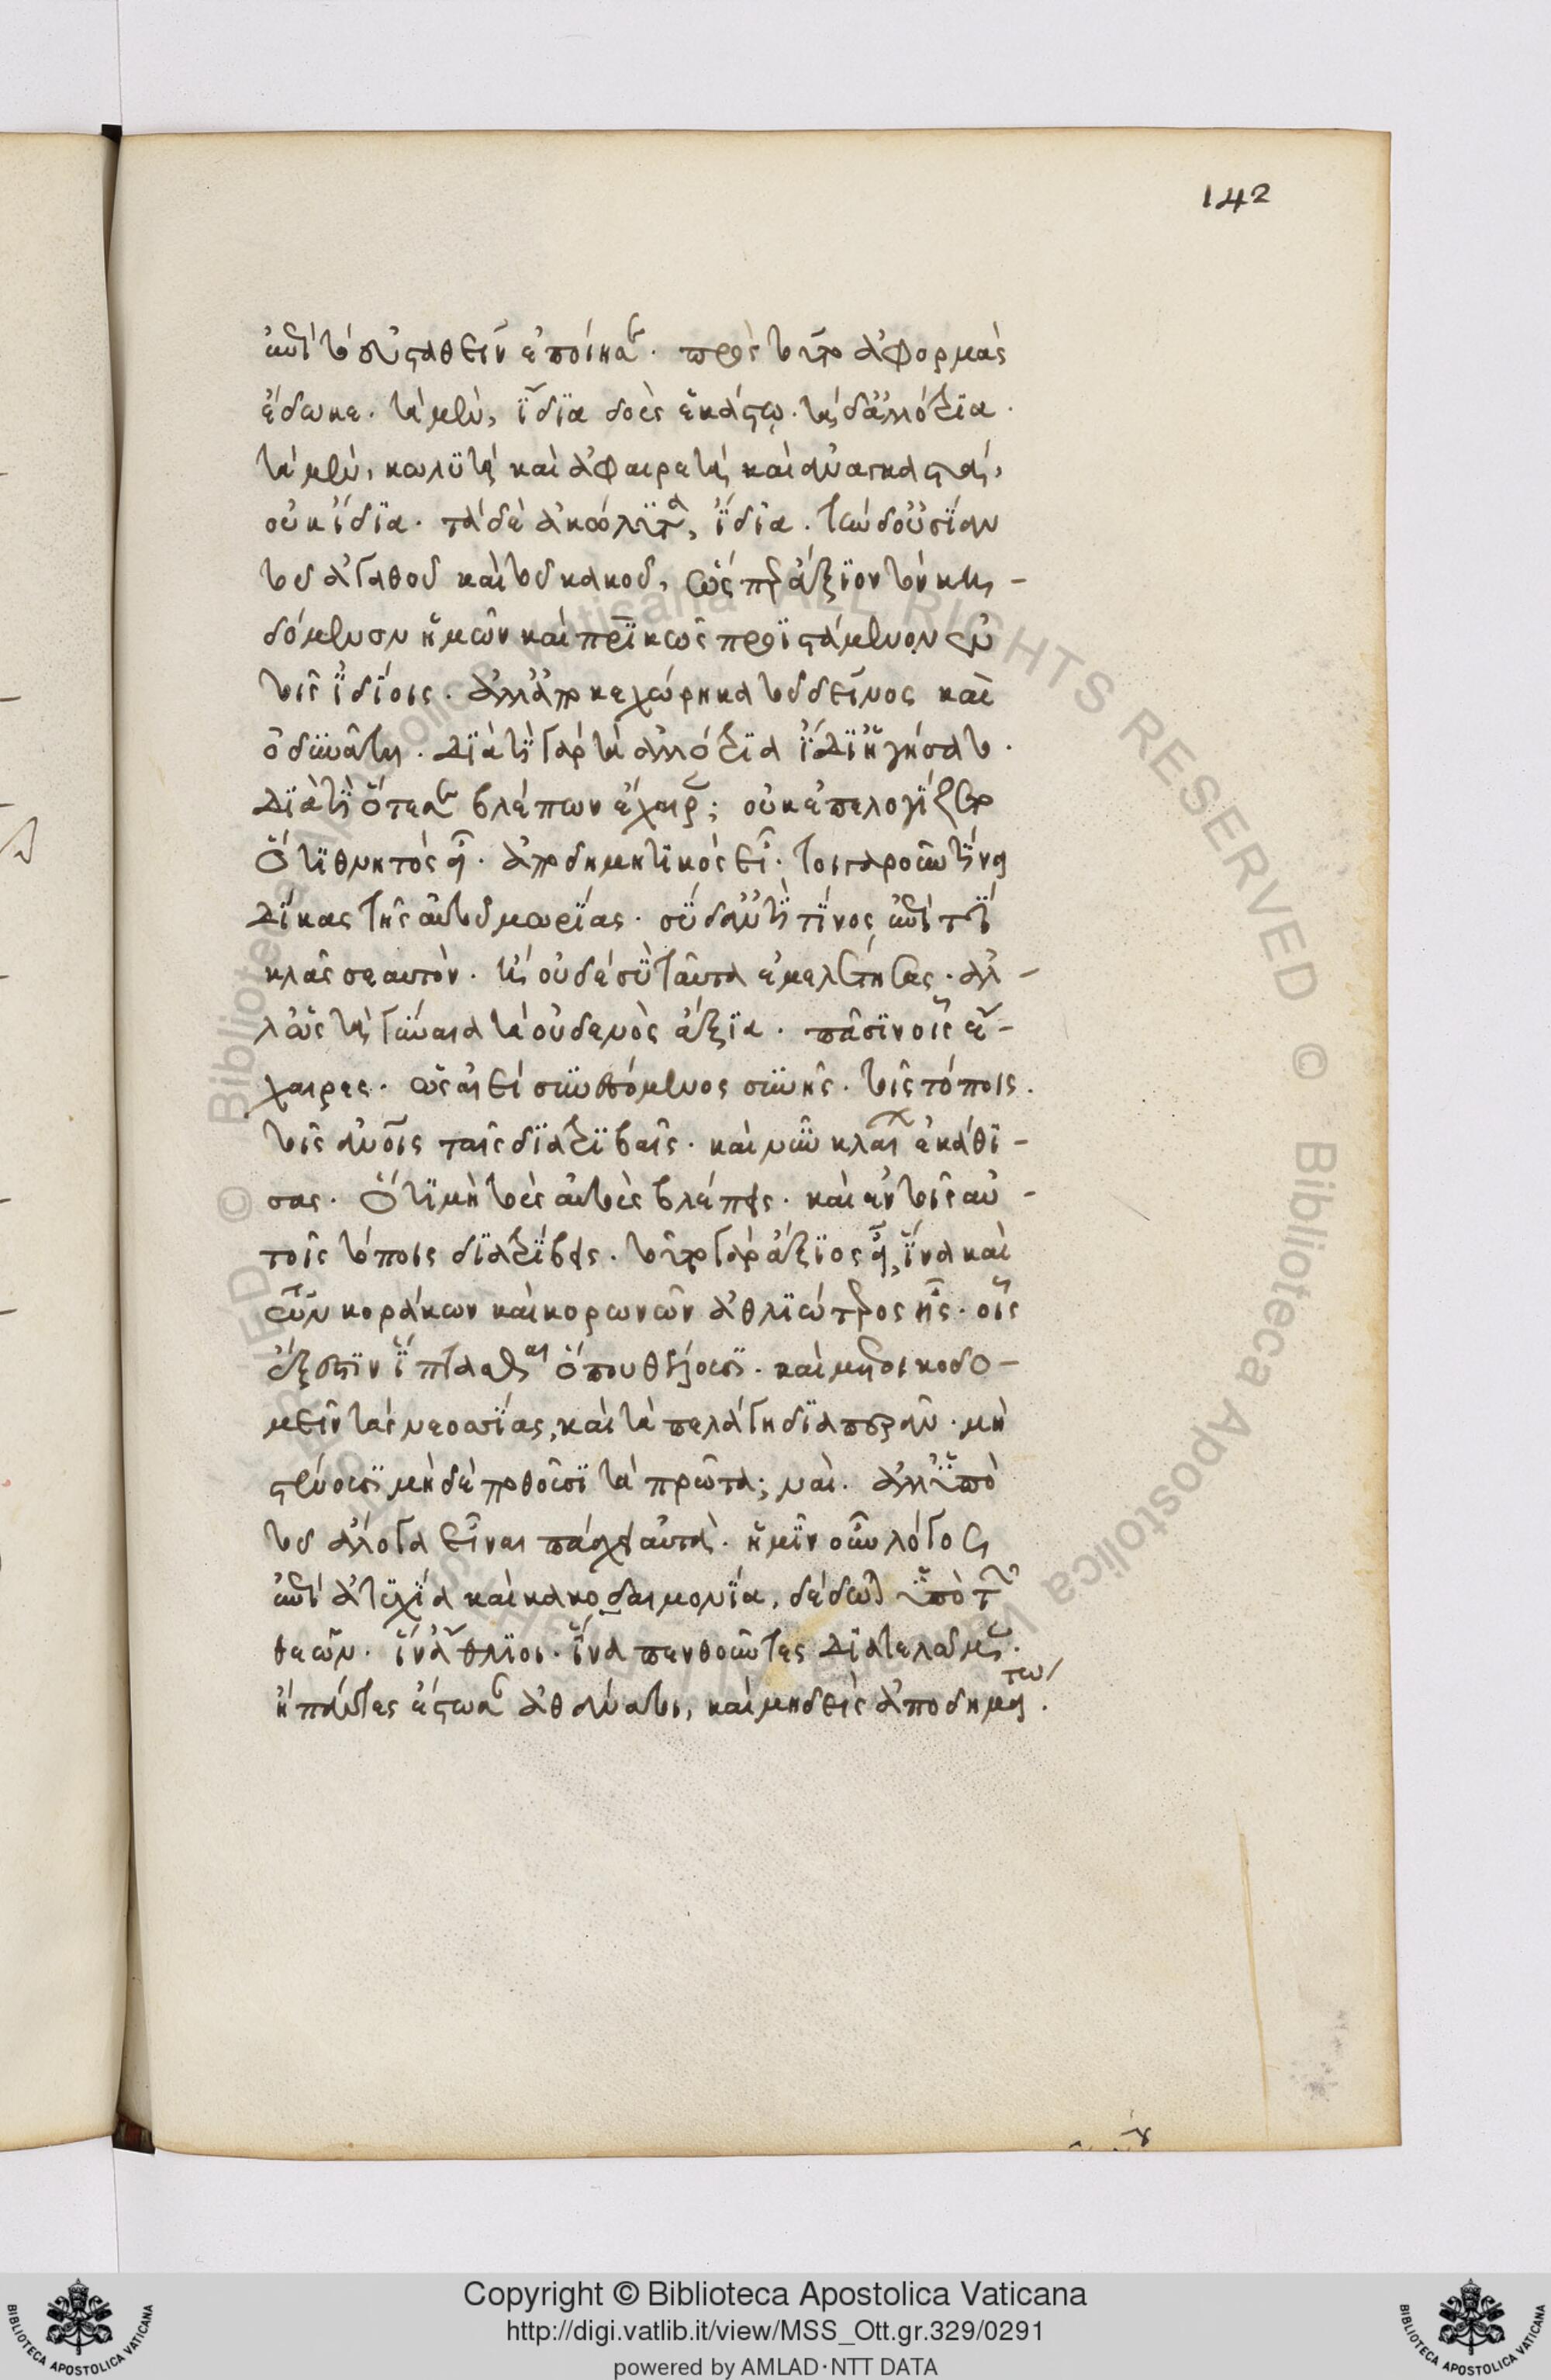 ἐπὶ τὸ εὐσταθεῖν ἐποίησεν. πρὸς τοῦτο ἀφορμὰς
ἔδωκε. τὰ μὲν, ἴδια δοὺς ἑκάστῳ. τὰ δ' ἀλλότρια.
τὰ μὲν, κωλυτὰ καὶ ἀφαιρετὰ καὶ ἀναγκαστὰ,
οὐκ ἴδια. τὰ δὲ ἀκώλυτα, ἴδια. τὴν δ' οὐσίαν
τοῦ ἀγαθοῦ καὶ τοῦ κακοῦ, ὥσπερ ἄξιον τὸν κη-
δόμενον ἡμῶν καὶ πατρικῶς προϊστάμενον ἐν
τοῖς ἰδίοις. ἀλλ' ἀποκεχώρηκα τοῦ δεῖνος καὶ
ὀδυνᾶται. διὰ τί γὰρ τὰ ἀλλότρια ἴδι' ἡγήσατο.
διὰ τί ὅτε σε βλέπων ἔχαιρεν; οὐκ ἐπελογίζετο
ὅτι θνητὸς εἶ. ἀποδημητικὸς εἶ. τοιγαροῦν τίνει
δίκας τῆς αὑτοῦ μωρίας. σὺ δ' ἀντὶ τίνος ἐπὶ τί
κλαῖς σεαυτόν. ἢ οὐδὲ σὺ ταῦτα ἐμελέτησας. ἀλ-
λ' ὡς τὰ γύναια τὰ οὐδενὸς ἄξια. πᾶσιν οἷς ἔ-
χαιρες. ὡς ἀεὶ συνεσόμενος συνῆς. τοῖς τόποις.
τοῖς ἀνοῖς ταῖς διατριβαῖς. καὶ νῦν κλαίων ἐκάθι-
σας. ὅτι μὴ τοὺς αὐτοὺς βλέπεις. καὶ ἐν τοῖς αὐ-
τοῖς τόποις διατρίβεις. τούτου γὰρ ἄξιος εἶ, ἵνα καὶ
τῶν κοράκων καὶ κορωνῶν ἀθλιώτερος ᾖς. οἷς
ἔξεστιν ἵπτασθαι ὅπου θέλουσι. καὶ μετοικοδο-
μεῖν τὰς νεοσσίας, καὶ τὰ πελάγη διαπερᾶν. μὴ
στένουσι μηδὲ ποθοῦσι τὰ πρῶτα; ναί. ἀλλ' ὑπὸ
τοῦ ἄλογα εἶναι πάσχει αὐτά. ἡμῖν οὖν λόγος
ἐπὶ ἀτυχίᾳ καὶ κακοδαιμονίᾳ, δέδοται ὑπὸ τῶν
θεῶν. ἵν' ἄθλιοι. ἵνα πενθοῦντες διατελῶμεν.
ἢ πάντες ἔστωσαν ἀθάνατοι, καὶ μηδεὶς ἀποδημείτω.
142
Copyright © Biblioteca Apostolica Vaticana
http://digi.vatlib.it/view/MSS_Ott.gr.329/0291
powered by AMLAD·NTT DATA